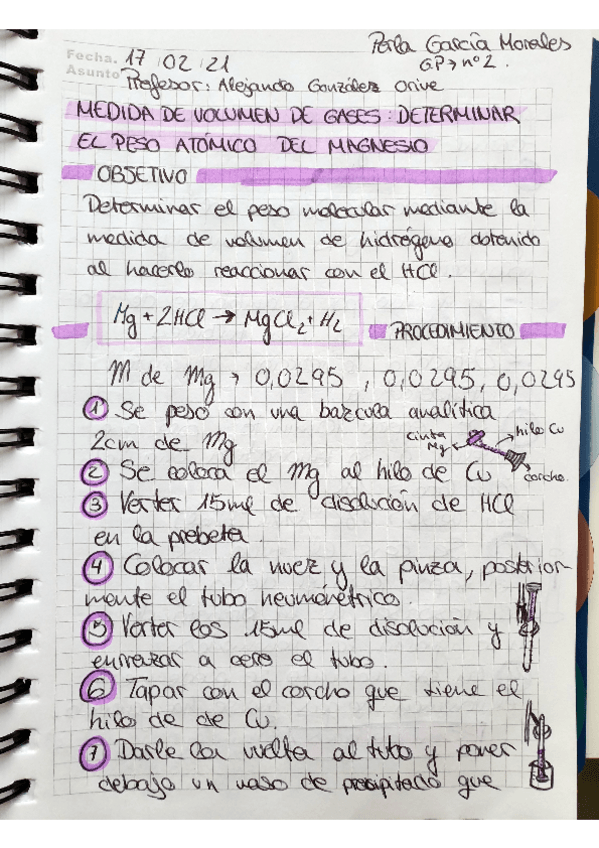 Perla García Morales
Fecha. 17 02 21
G.P → nº2.
Asunto
Profesor: Alejandro González Orive
MEDIDA DE VOLUMEN DE GASES: DETERMINAR
EL PESO ATÓMICO DEL MAGNESIO
OBJETIVO
Determinar el peso molecular mediante la
medida de volumen de hidrógeno obtenido
al hacerlo reaccionar con el HCl.
Mg + 2HCl → MgCl₂ + H₂
PROCEDIMIENTO
M de Mg → 0,0295 , 0,0295, 0,0295
① Se pesó con una bazcula analítica
2cm de Mg
cinta Mg
hilo Cu
corcho.
② Se coloca el Mg al hilo de Cu
③ Verter 15ml de disolución de HCl
en la probeta.
④ Colocar la nuez y la pinza, posterior-
mente el tubo neumométrico.
⑤ Verter los 15ml de disolución y
enrrazar a cero el tubo.
⑥ Tapar con el corcho que tiene el
hilo de de Cu.
⑦ Darle la vuelta al tubo y poner
debajo un vaso de precipitado que